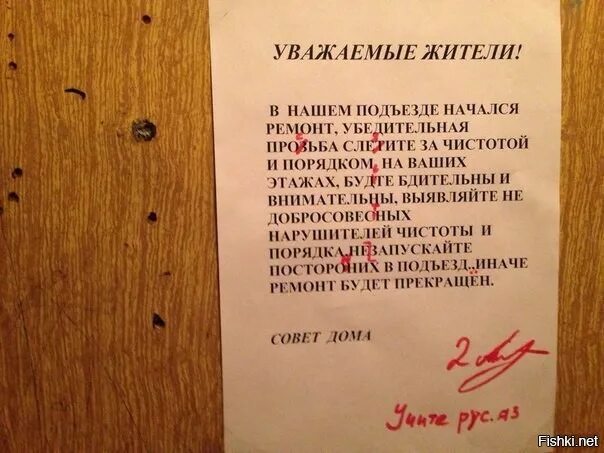 УВАЖАЕМЫЕ ЖИТЕЛИ!
В НАШЕМ ПОДЪЕЗДЕ НАЧАЛСЯ
РЕМОНТ, УБЕДИТЕЛЬНАЯ
ПРОЗЬБА СЛЕРИТЕ ЗА ЧИСТОТОЙ
И ПОРЯДКОМ, НА ВАШИХ
ЭТАЖАХ, БУДТЕ БДИТЕЛЬНЫ И
ВНИМАТЕЛЬНЫ, ВЫЯВЛЯЙТЕ НЕ
ДОБРОСОВЕСНЫХ
НАРУШИТЕЛЕЙ ЧИСТОТЫ И
ПОРЯДКА,НЕЗАПУСКАЙТЕ
ПОСТОРОНИХ В ПОДЪЕЗД..ИНАЧЕ
РЕМОНТ БУДЕТ ПРЕКРАЩЁН.
СОВЕТ ДОМА
2
Учите рус. яз
Fishki.net